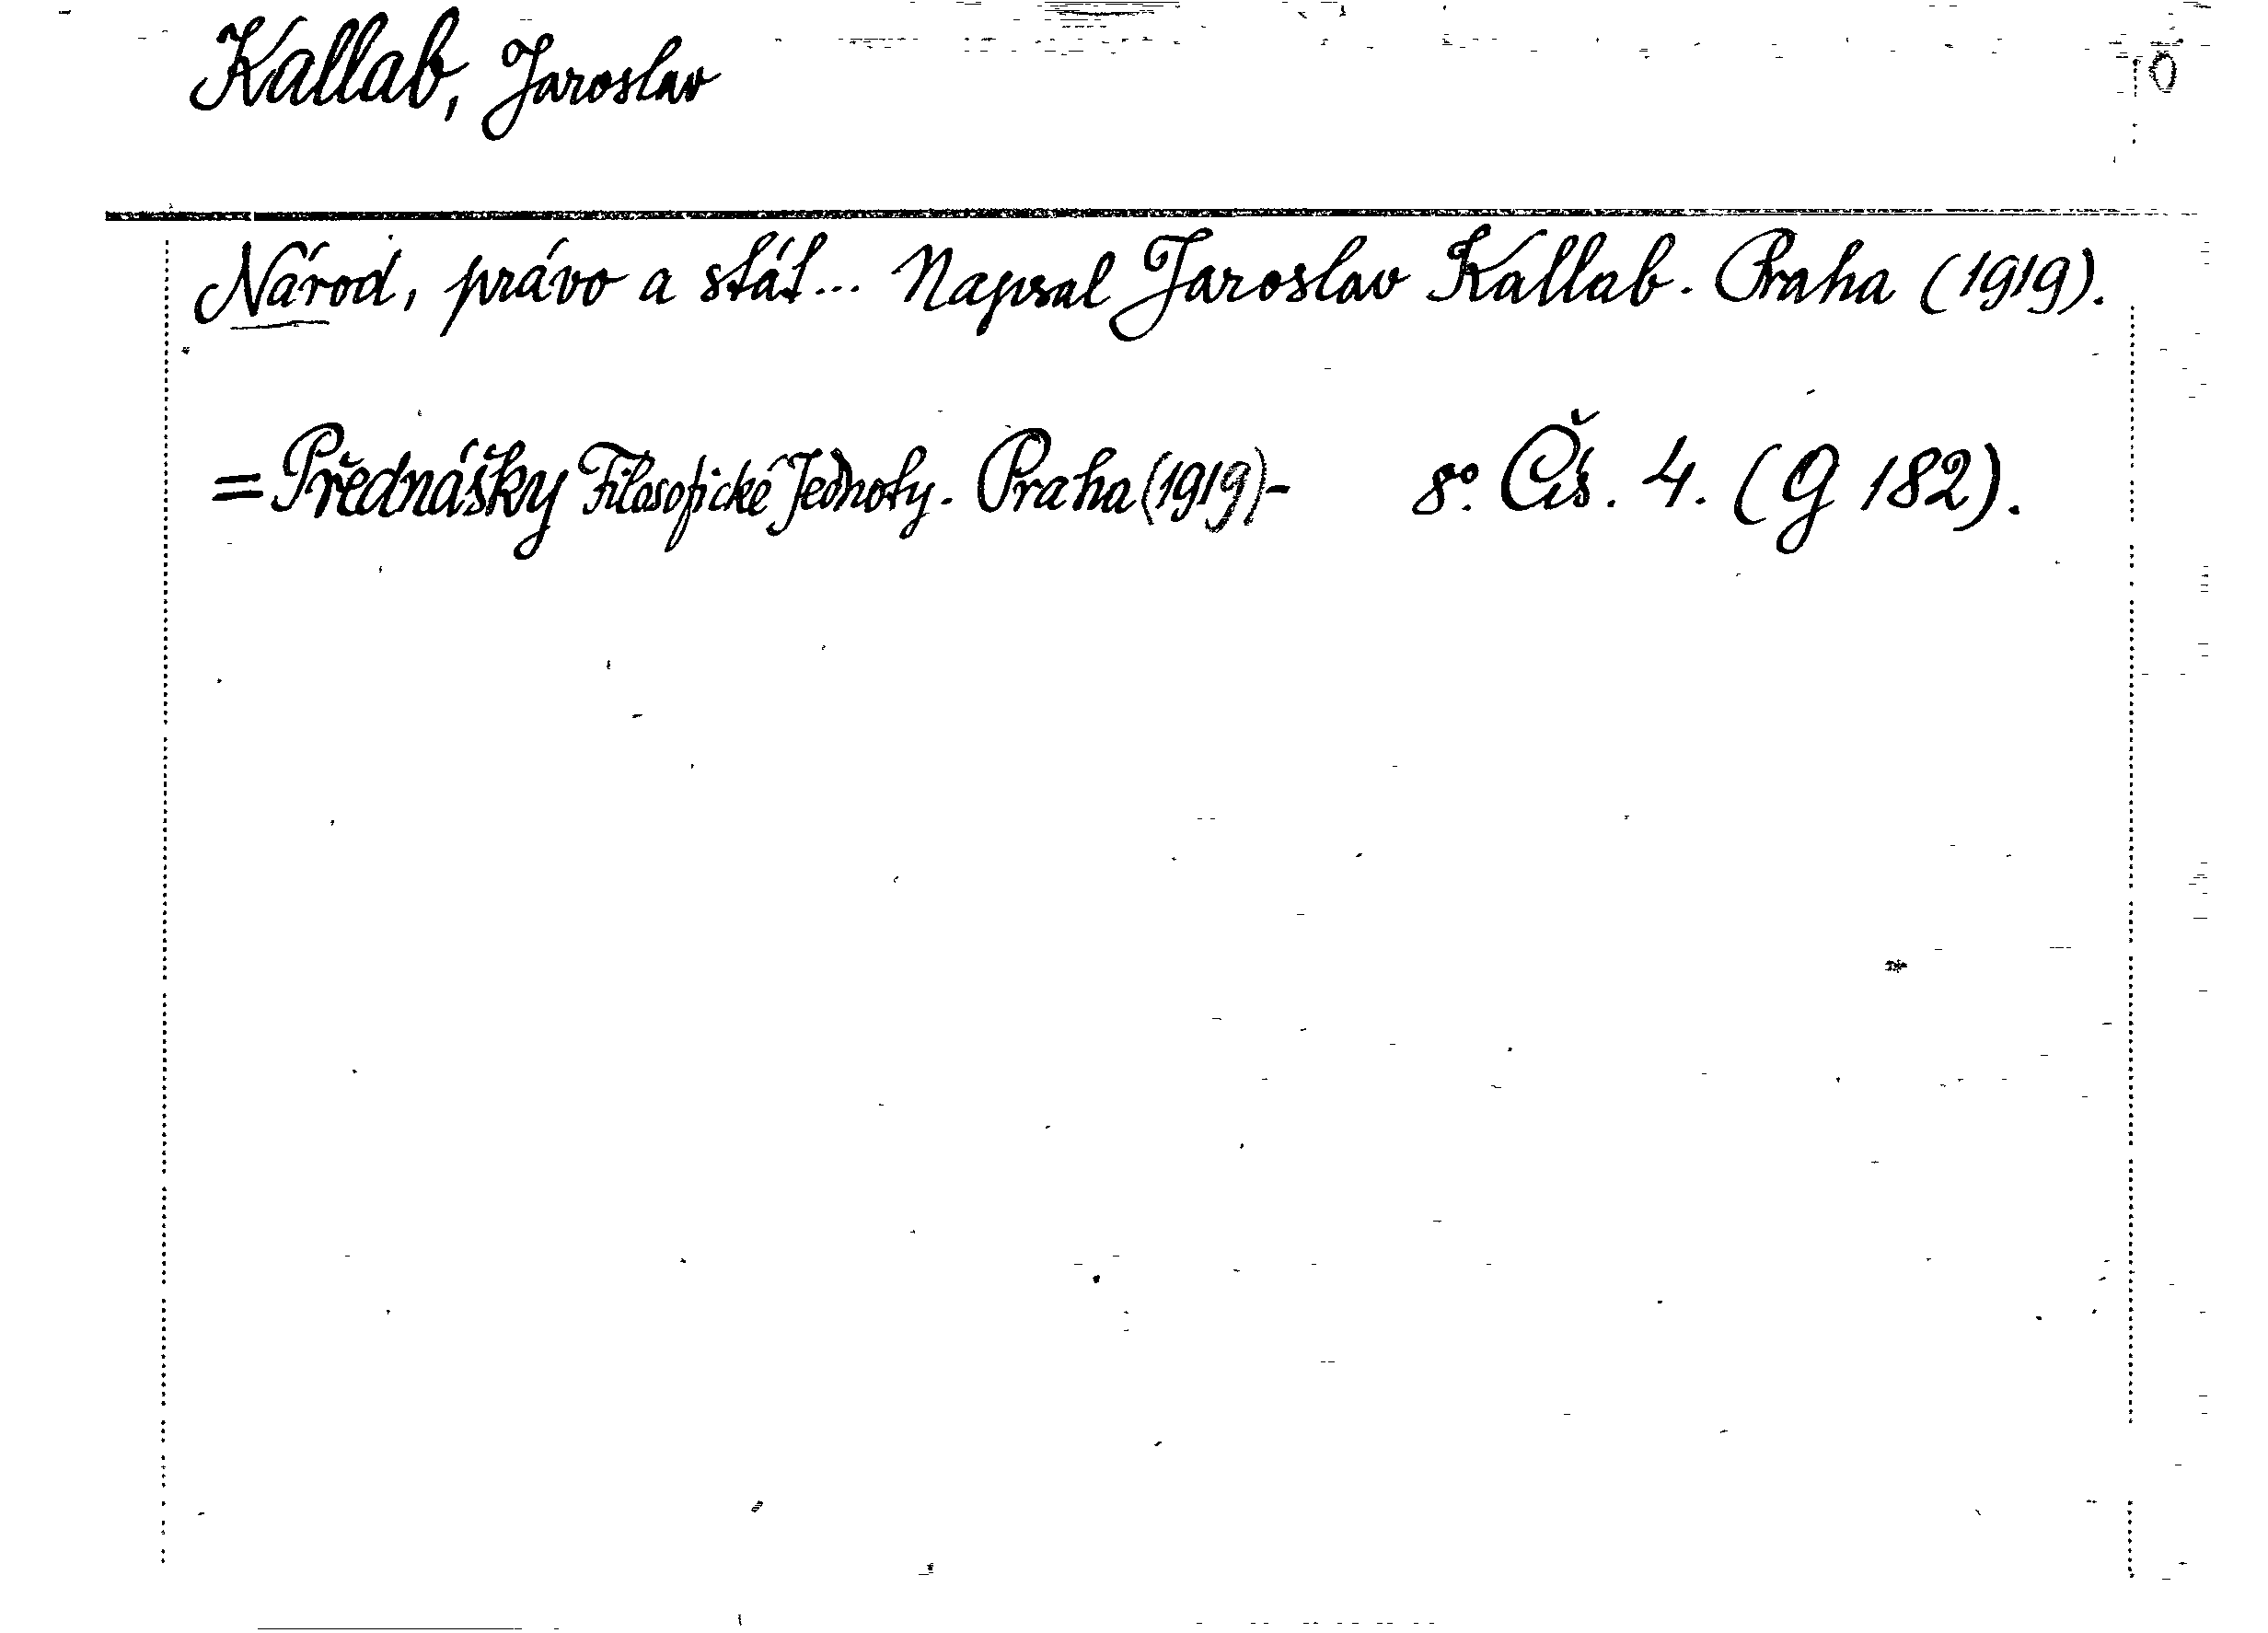 Kallab, Jaroslav
Národ, právo a stát... Napsal Jaroslav Kallab. Praha (1919).
= Přednášky Filosofické Jednoty. Praha (1919)- 8°. Čís. 4. (G 182).